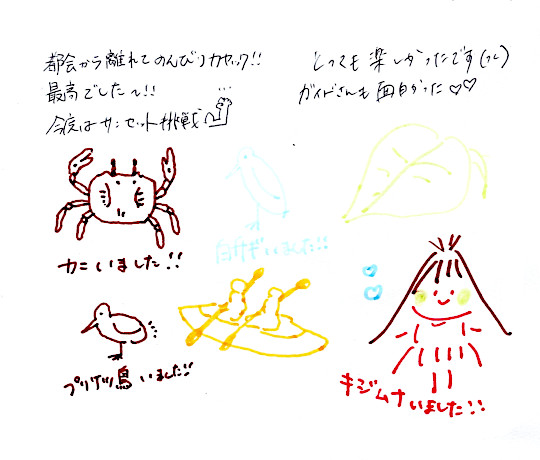 都会から離れてのんびりカヤック!!
最高でした〜!!
今度はサンセット挑戦
とっても楽しかったです(^^)
ガイドさんも面白かった♡♡
白サギいました!!
カニいました!!
プリケツ鳥いました!!
キジムナいました!!